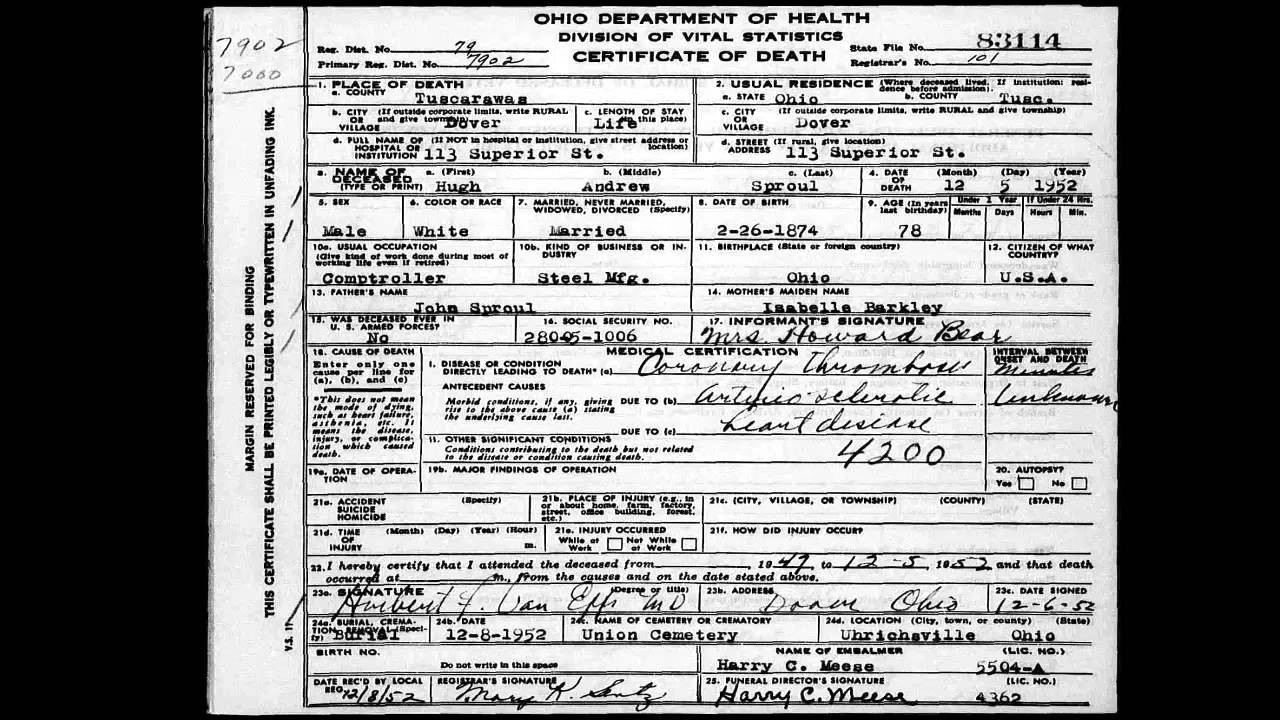 OHIO DEPARTMENT OF HEALTH
DIVISION OF VITAL STATISTICS
CERTIFICATE OF DEATH
7902
7000
Reg. Dist. No. 79
Primary Reg. Dist. No. 7902
State File No. 83114
Registrar's No. 101
MARGIN RESERVED FOR BINDING
THIS CERTIFICATE SHALL BE PRINTED LEGIBLY OR TYPEWRITTEN IN UNFADING INK.
V.S. 11
1. PLACE OF DEATH
a. COUNTY Tuscarawas
2. USUAL RESIDENCE (Where deceased lived. If institution: residence before admission).
a. STATE Ohio b. COUNTY Tusc.
b. CITY (If outside corporate limits, write RURAL
OR and give township)
VILLAGE Dover
c. LENGTH OF STAY
(in this place)
Life
c. CITY (If outside corporate limits, write RURAL and give township)
OR
VILLAGE Dover
d. FULL NAME OF (If NOT in hospital or institution, give street address or
HOSPITAL OR location)
INSTITUTION 113 Superior St.
d. STREET (If rural, give location)
ADDRESS 113 Superior St.
3. NAME OF a. (First) b. (Middle) c. (Last)
DECEASED
(TYPE OR PRINT) Hugh Andrew Sproul
4. DATE (Month) (Day) (Year)
OF
DEATH 12 5 1952
5. SEX
Male
6. COLOR OR RACE
White
7. MARRIED, NEVER MARRIED,
WIDOWED, DIVORCED (Specify)
Married
8. DATE OF BIRTH
2-26-1874
9. AGE (In years
last birthday)
78
Under 1 Year If Under 24 Hrs.
Months Days Hours Min.
10a. USUAL OCCUPATION
(Give kind of work done during most of
working life even if retired)
Comptroller
10b. KIND OF BUSINESS OR IN-
DUSTRY
Steel Mfg.
11. BIRTHPLACE (State or foreign country)
Ohio
12. CITIZEN OF WHAT
COUNTRY?
U.S.A.
13. FATHER'S NAME
John Sproul
14. MOTHER'S MAIDEN NAME
Isabelle Barkley
15. WAS DECEASED EVER IN
U. S. ARMED FORCES?
No
16. SOCIAL SECURITY NO.
17. INFORMANT'S SIGNATURE
Mrs Howard Bear
18. CAUSE OF DEATH
Enter only one
cause per line for
(a), (b), and (c)
*This does not mean
the mode of dying,
such as heart failure,
asthenia, etc. It
means the disease,
injury, or complica-
tion which caused
death.
MEDICAL CERTIFICATION
INTERVAL BETWEEN
ONSET AND DEATH
I. DISEASE OR CONDITION
DIRECTLY LEADING TO DEATH* (a) Coronary Thrombosis Minutes
ANTECEDENT CAUSES
Morbid conditions, if any, giving DUE TO (b) Arterio-sclerotic Unknown
rise to the above cause (a) stating
the underlying cause last.
DUE TO (c) heart disease
11. OTHER SIGNIFICANT CONDITIONS
Conditions contributing to the death but not related
to the disease or condition causing death.
4200
19a. DATE OF OPERA-
TION
19b. MAJOR FINDINGS OF OPERATION
20. AUTOPSY?
Yes No
21a. ACCIDENT (Specify)
SUICIDE
HOMICIDE
21b. PLACE OF INJURY (e.g., in
or about home, farm, factory,
street, office building, forest,
etc.)
21c. (CITY, VILLAGE, OR TOWNSHIP) (COUNTY) (STATE)
21d. TIME (Month) (Day) (Year) (Hour)
OF
INJURY m.
21e. INJURY OCCURRED
While at Work Not While at Work
21f. HOW DID INJURY OCCUR?
22. I hereby certify that I attended the deceased from 1949 to 12-5, 1952 and that death
occurred at m., from the causes and on the date stated above.
23a. SIGNATURE (Degree or title)
Herbert F. Van Epps MD
23b. ADDRESS
Dover Ohio
23c. DATE SIGNED
12-6-52
24a. BURIAL, CREMA-
TION, REMOVAL (Speci-
fy) Burial
24b. DATE
12-8-1952
24c. NAME OF CEMETERY OR CREMATORY
Union Cemetery
24d. LOCATION (City, town, or county) (State)
Uhrichsville Ohio
BIRTH NO.
Do not write in this space
NAME OF EMBALMER (LIC. NO.)
Harry C. Meese 5504-A
DATE REC'D BY LOCAL
REG. 12/8/52
REGISTRAR'S SIGNATURE
Mary K.
25. FUNERAL DIRECTOR'S SIGNATURE (LIC. NO.)
Harry C. Meese 4362